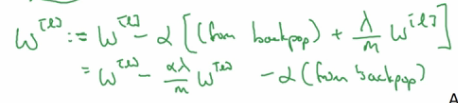 W^[l] := W^[l] - α [ (from backpop) + λ/m W^[l] ]
= W^[l] - αλ/m W^[l] - α (from backpop)
A